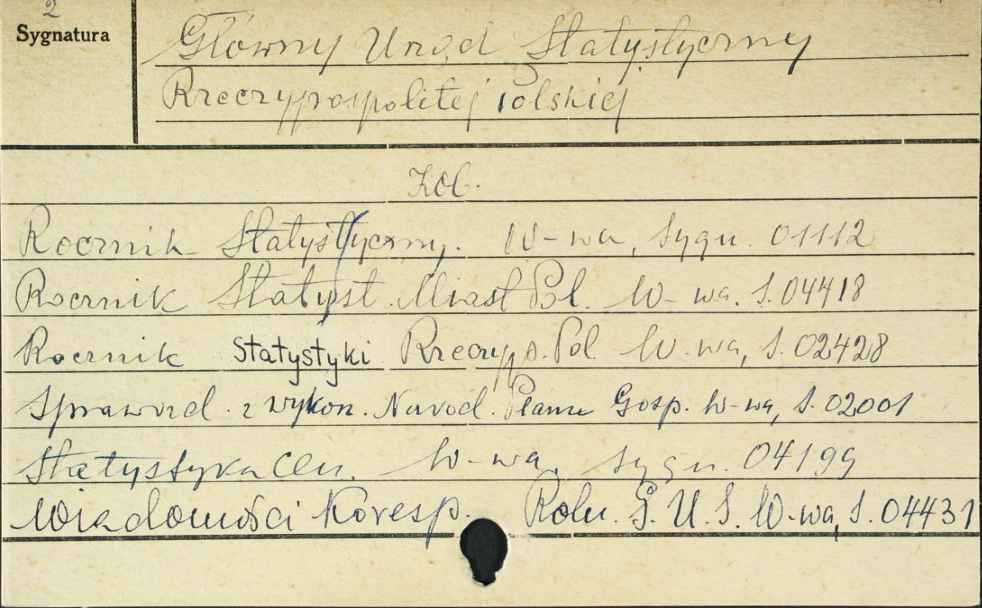 2
Sygnatura
Główny Urząd Statystyczny
Rzeczypospolitej Polskiej
Zob.
Rocznik Statystyczny. W-wa, sygn. 01112
Rocznik Statyst. Miast Pol. W-wa. S. 04418
Rocznik Statystyki Rzeczyp. Pol W-wa, S. 02428
Sprawozd. z wykon. Narod. Planu Gosp. W-wa, S. 02001
Statystyka Cen. W-wa, sygn. 04199
Wiadomości Koresp. Roln. G. U. S. W-wa, S. 04431